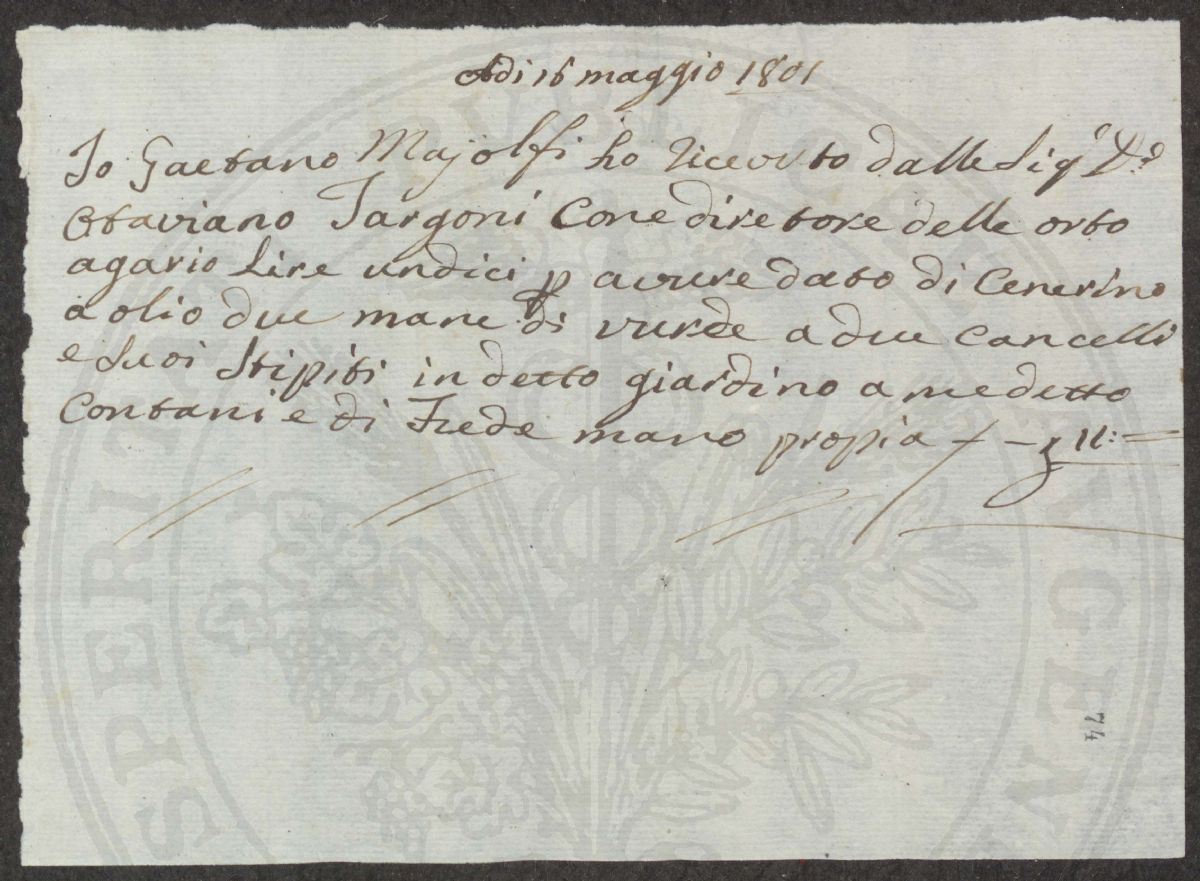 Adi 16 maggio 1801
Io Gaetano Majolfi ho riceuto dalle Sigr Dr
Otaviano Targoni Cone diretore delle orto
agario Lire undici p avere dato di Cenerino
a olio due mane di verde a due Cancelli
e Suoi Stipiti in detto giardino a me detto
Contani e di Fede mano propia - 11:
74